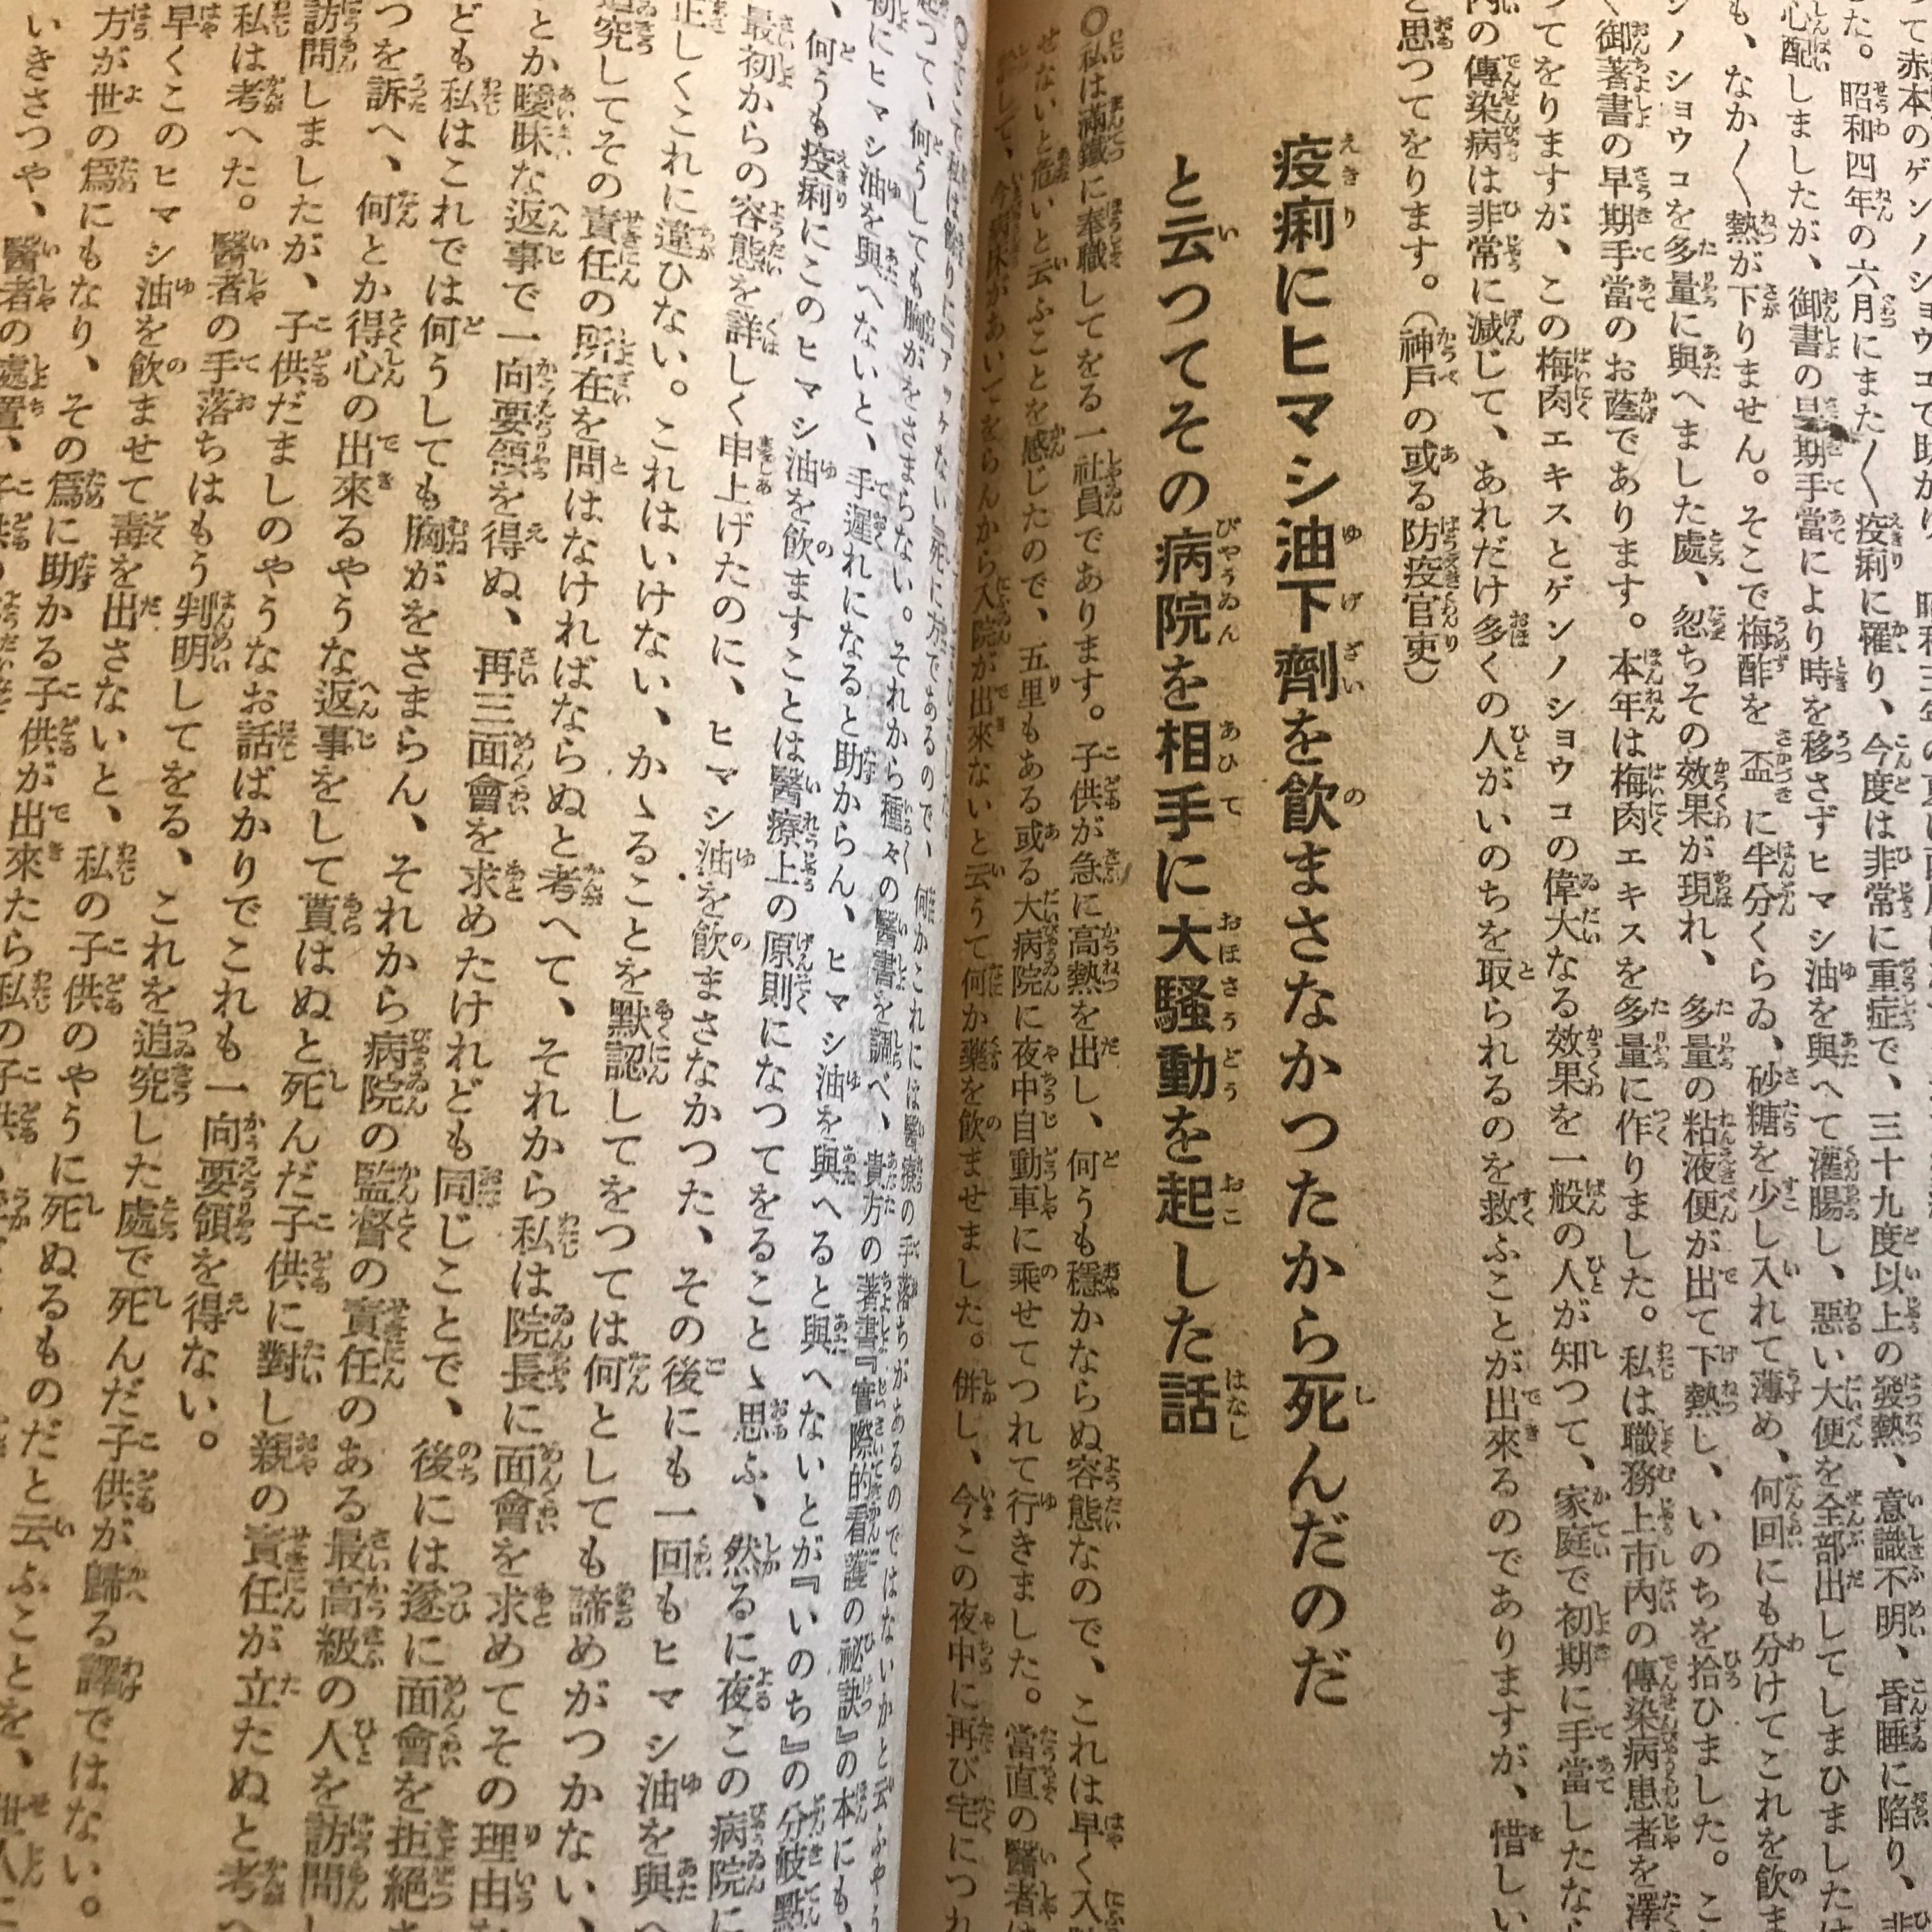 つて赤本のゲンノショウコで助かり
した。昭和四年の六月にまた〱疫痢に罹り、今度は非常に重症で、三十九度以上の發熱、意識不明、昏睡に陷り、
心配しましたが、御書の早期手當により時を移さずヒマシ油を與へて灌腸し、惡い大便を全部出してしまひました
も、なか〱熱が下りません。そこで梅酢を盃に半分くらゐ、砂糖を少し入れて薄め、何回にも分けてこれを飮ま
ンノショウコを多量に與へました處、忽ちその效果が現れ、多量の粘液便が出て下熱し、いのちを拾ひました。こ
く御著書の早期手當のお蔭であります。本年は梅肉エキスを多量に作りました。私は職務上市内の傳染病患者を澤
つてをりますが、この梅肉エキスとゲンノショウコの偉大なる效果を一般の人が知つて、家庭で初期に手當したな
内の傳染病は非常に減じて、あれだけ多くの人がいのちを取られるのを救ふことが出來るのでありますが、惜しい
と思つてをります。（神戶の或る防疫官吏）
疫痢にヒマシ油下劑を飮まさなかつたから死んだのだ
と云つてその病院を相手に大騷動を起した話
〇私は滿鐵に奉職してをる一社員であります。子供が急に高熱を出し、何うも穩かならぬ容態なので、これは早く入
せないと危いと云ふことを感じたので、五里もある或る大病院に夜中自動車に乘せてつれて行きました。當直の醫者は
して、今病床があいてをらんから入院が出來ないと云うて何か藥を飮ませました。併し、今この夜中に再び宅につれ
起つて、何うしても胸がをさまらない。それから種々の醫書を調べ、貴方の著書『實際的看護の祕訣』の本にも、
初にヒマシ油を與へないと、手遲れになると助からん、ヒマシ油を與へると與へないとが『いのち』の分岐點
、何うも疫痢にこのヒマシ油を飮ますことは醫療上の原則になつてをることゝ思ふ、然るに夜この病院に
最初からの容態を詳しく申上げたのに、ヒマシ油を飮まさなかつた、その後にも一回もヒマシ油を與へ
正しくこれに違ひない。これはいけない、かゝることを默認してをつては何としても諦めがつかない、
追究してその責任の所在を問はなければならぬと考へて、それから私は院長に面會を求めてその理由な
とか曖昧な返事で一向要領を得ぬ、再三面會を求めたけれども同じことで、後には遂に面會を拒絕さ
ども私はこれでは何うしても胸がをさまらん、それから病院の監督の責任のある最高級の人を訪問し
つを訴へ、何とか得心の出來るやうな返事をして貰はぬと死んだ子供に對し親の責任が立たぬと考へ
訪問しましたが、子供だましのやうなお話ばかりでこれも一向要領を得ない。
私は考へた。醫者の手落ちはもう判明してをる、これを追究した處で死んだ子供が歸る譯ではない。
早くこのヒマシ油を飮ませて毒を出さないと、私の子供のやうに死ぬるものだと云ふことを、世人に
方が世の爲にもなり、その爲に助かる子供が出來たら私の子供
いきさつや、醫者の處置、